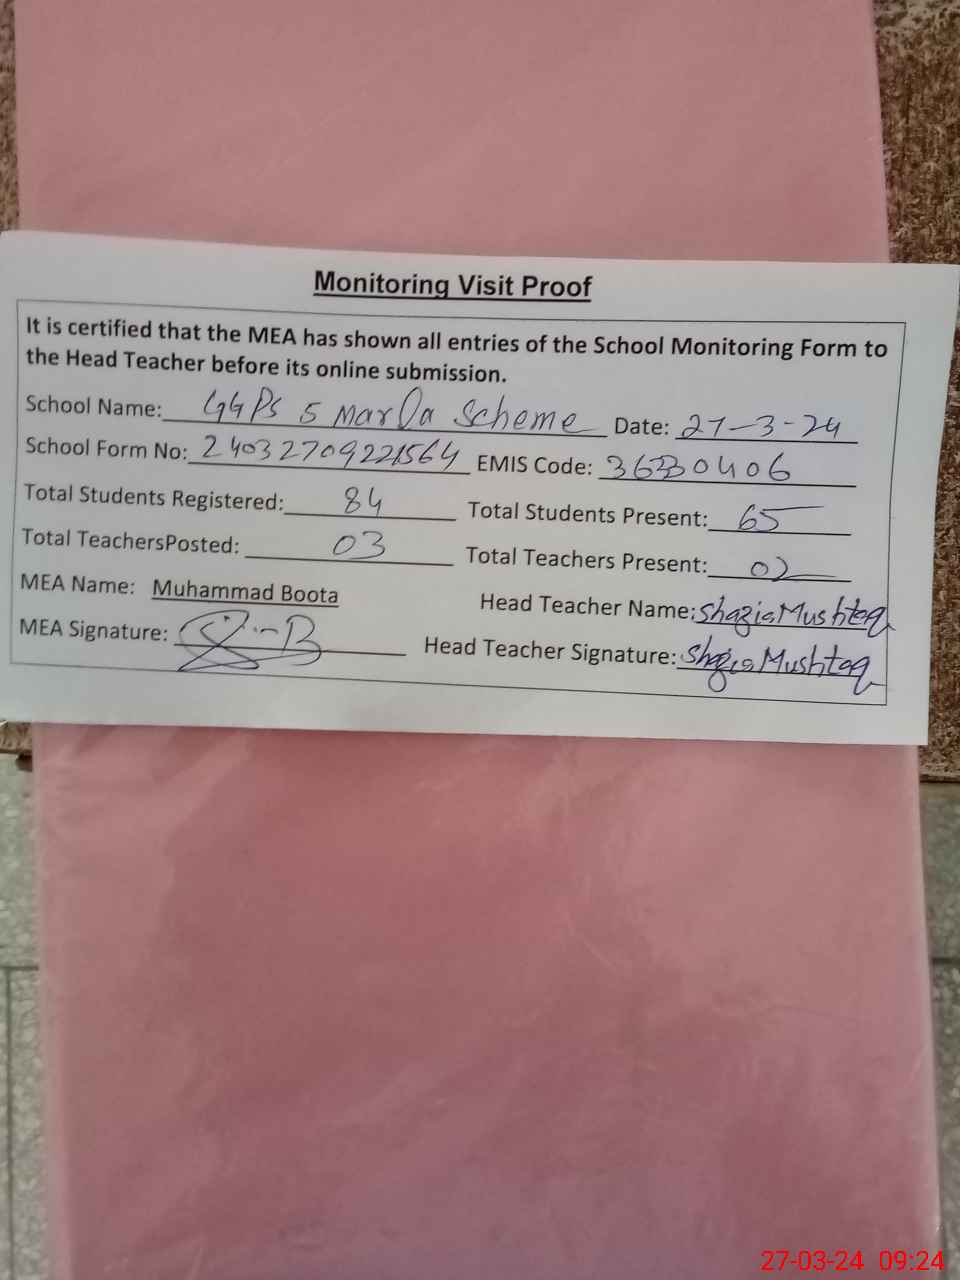 Monitoring Visit Proof
It is certified that the MEA has shown all entries of the School Monitoring Form to
the Head Teacher before its online submission.
School Name: GGPS 5 Marla Scheme Date: 27-3-24
School Form No: 24032709221564 EMIS Code: 36230406
Total Students Registered: 84 Total Students Present: 65
Total TeachersPosted: 03 Total Teachers Present: 02
MEA Name: Muhammad Boota Head Teacher Name: Shazia Mushtaq
MEA Signature: Head Teacher Signature: Shazia Mushtaq
27-03-24 09:24